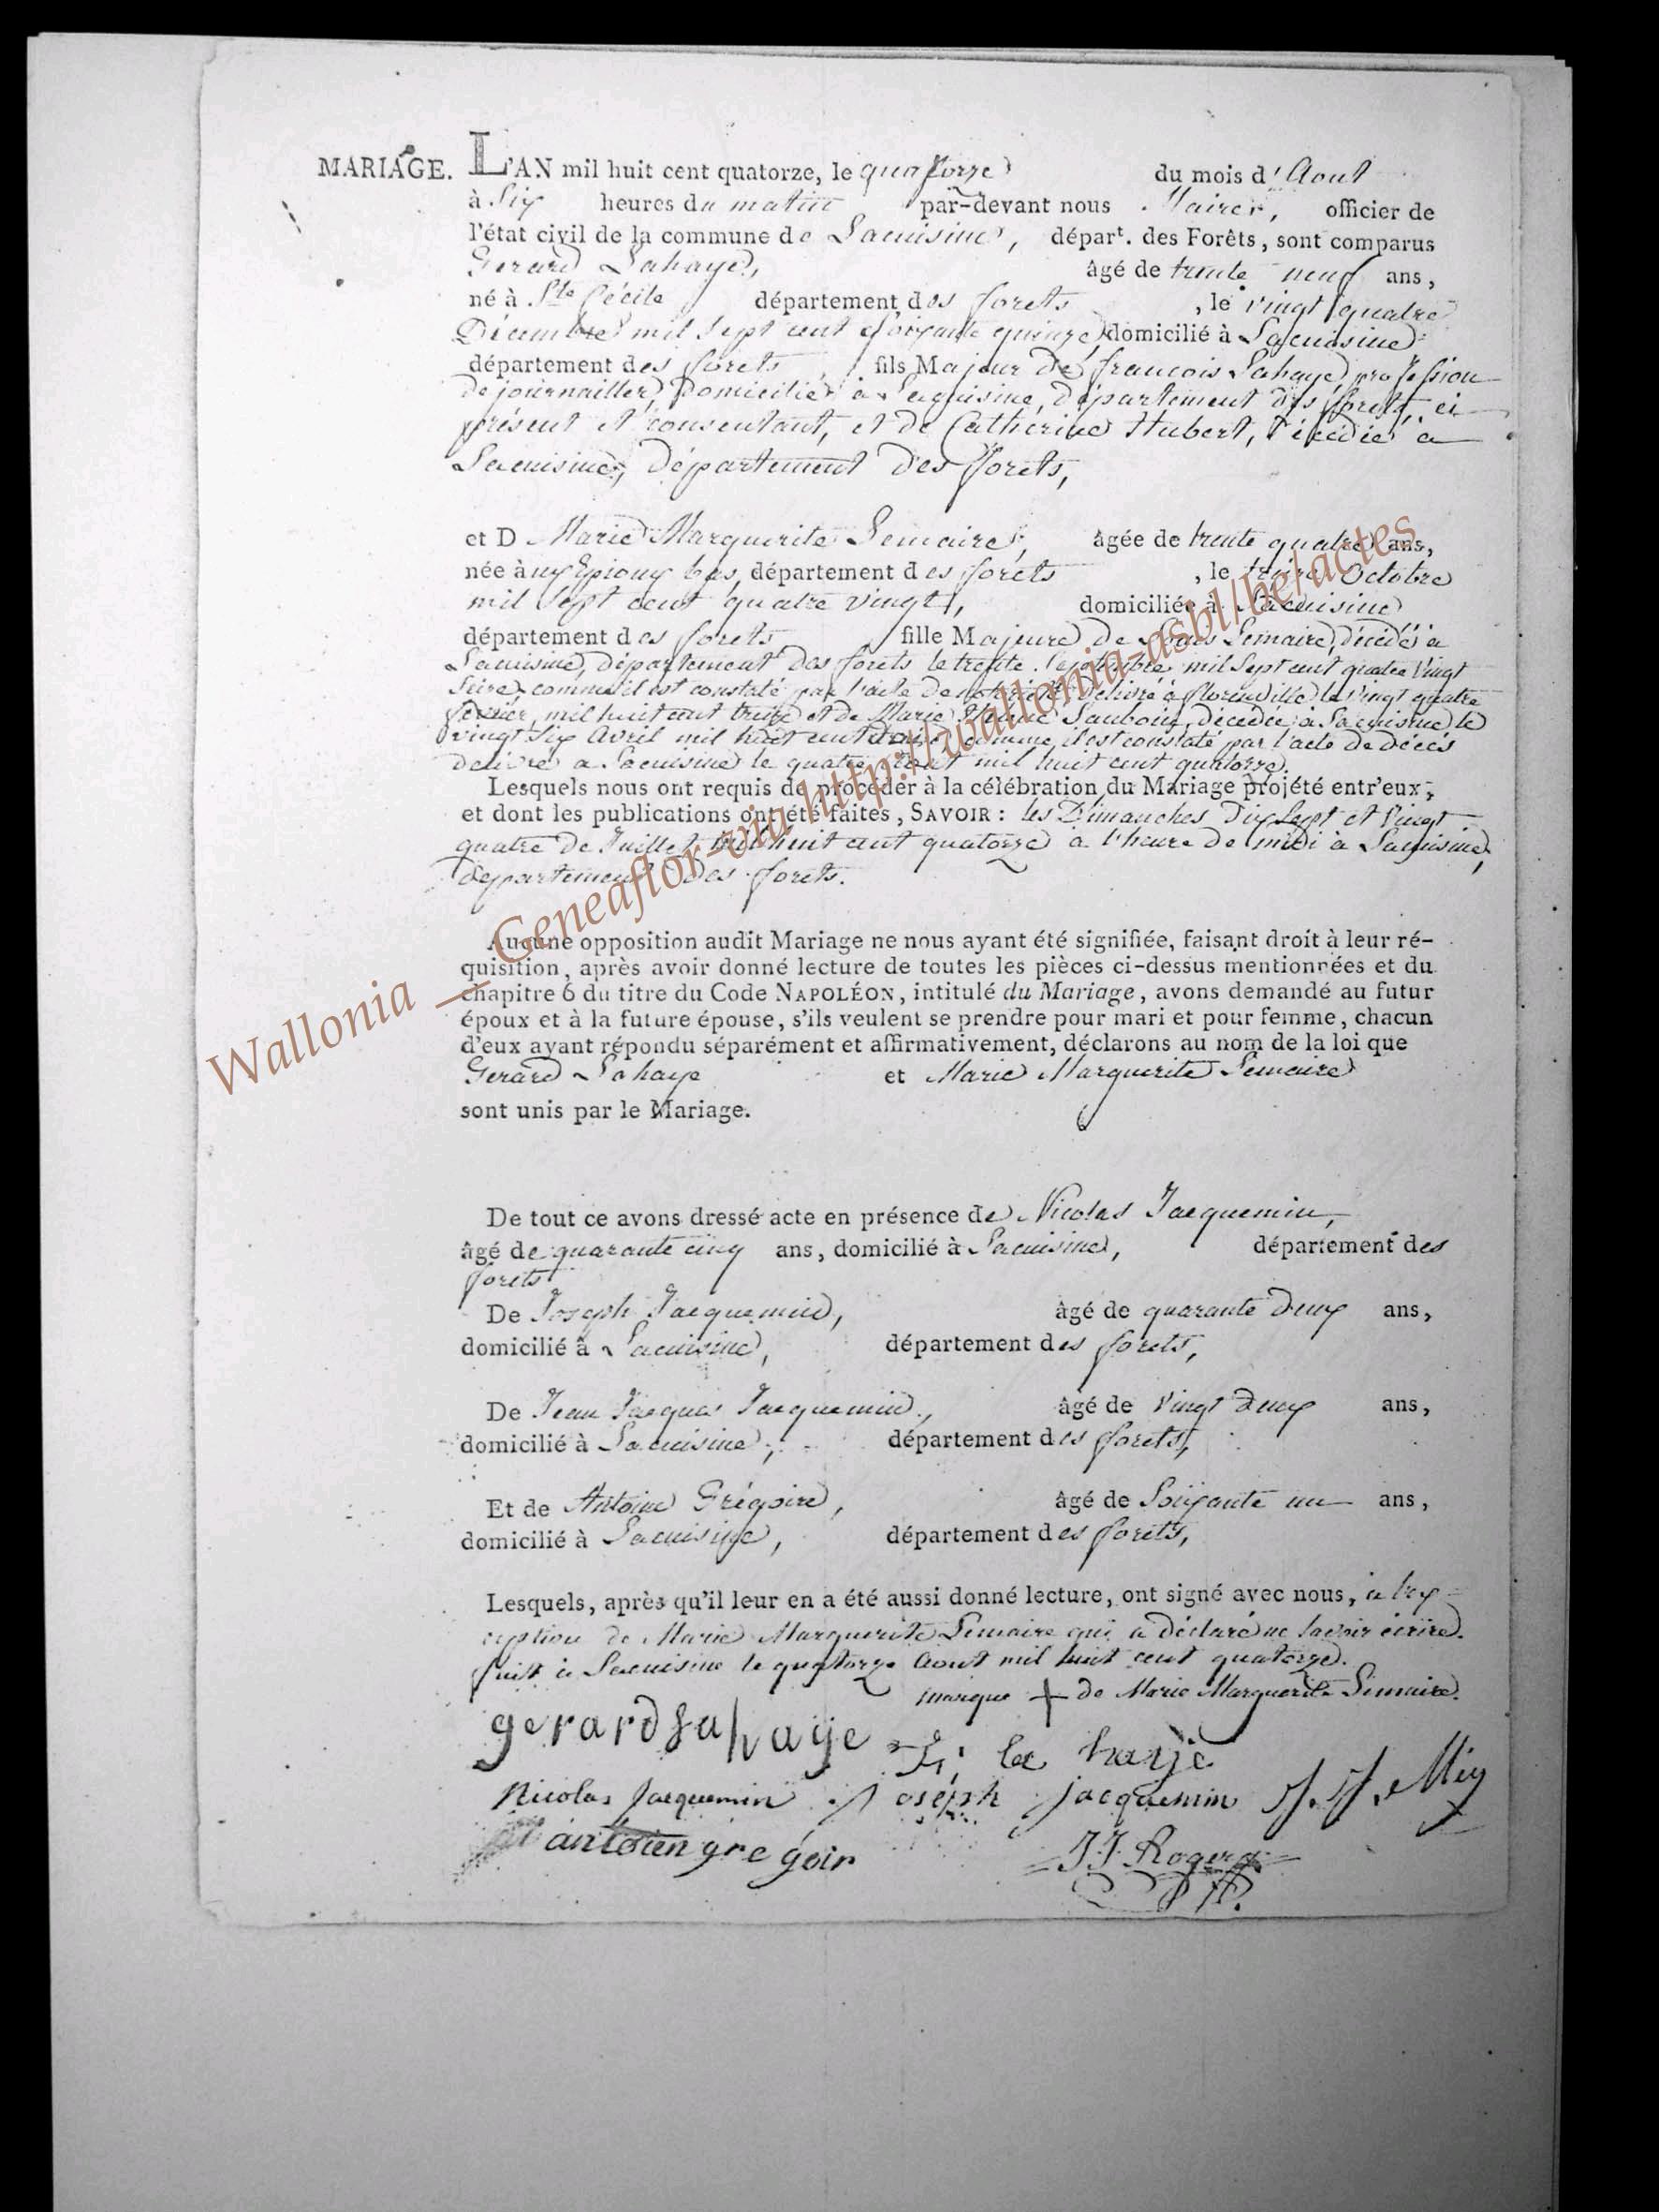 MARIAGE. L'AN mil huit cent quatorze, le quatorze du mois d'Aout
à Six heures du matin par-devant nous Maire, officier de
l'état civil de la commune de Lacuisine, départ. des Forêts, sont comparus
Gerard Lahaye, âgé de trente neuf ans,
né à Ste Cécile département des forets, le vingt quatre
Décembre mil sept cent soixante quinze domicilié à Lacuisine
département des forets, fils Majeur de francois Lahaye profession
de journaillier, Domicilié à Lacuisine, département des forets, ci
présent et consentant, et de Catherine Hubert, décédée à
Lacuisine, département des forets,
et D Marie Marguerite Lemaire, âgée de trente quatre ans,
née à département des forets, le Octobre
mil sept cent quatre vingt, domiciliée à Lacuisine
département des forets fille Majeure de Louis Lemaire, décédé à
Lacuisine, département des forets le trente Septembre mil Sept cent quatre Vingt
Seize, comme il est constaté par l'acte de délivré à florenville le Vingt quatre
fevrier mil huit cent treize et de Marie décédée à Lacuisine le
vingt Six Avril mil huit cent comme il est constaté par l'acte de décès
délivré à Lacuisine le quatre Aout mil huit cent quatorze.
Lesquels nous ont requis de procéder à la célébration du Mariage projété entr'eux,
et dont les publications ont été faites, SAVOIR : les Dimanches dix Sept et Vingt
quatre de Juillet mil huit cent quatorze à l'heure de midi à Lacuisine,
département des forets.
Aucune opposition audit Mariage ne nous ayant été signifiée, faisant droit à leur ré-
quisition, après avoir donné lecture de toutes les pièces ci-dessus mentionnées et du
chapitre 6 du titre du Code NAPOLÉON, intitulé du Mariage, avons demandé au futur
époux et à la future épouse, s'ils veulent se prendre pour mari et pour femme, chacun
d'eux ayant répondu séparément et affirmativement, déclarons au nom de la loi que
Gerard Lahaye et Marie Marguerite Lemaire
sont unis par le Mariage.
De tout ce avons dressé acte en présence de Nicolas Jacquemin,
âgé de quarante cinq ans, domicilié à Lacuisine, département des
forets
De Joseph Jacquemin, âgé de quarante deux ans,
domicilié à Lacuisine, département des forets,
De Jean Jacques Jacquemin, âgé de Vingt deux ans,
domicilié à Lacuisine, département des forets,
Et de Antoine Grégoire, âgé de Soixante un ans,
domicilié à Lacuisine, département des forets,
Lesquels, après qu'il leur en a été aussi donné lecture, ont signé avec nous, à l'ex-
ception de Marie Marguerite Lemaire qui a déclaré ne Savoir écrire.
fait à Lacuisine le quatorze Aout mil huit cent quatorze.
marque + de Marie Marguerite Lemaire.
gerard Lahaye la haye
Nicolas Jacquemin Joseph jacquemin
antoien gregoir J.J. Rogery
Wallonia __ Geneaflor-via http://wallonia-asbl/be/actes